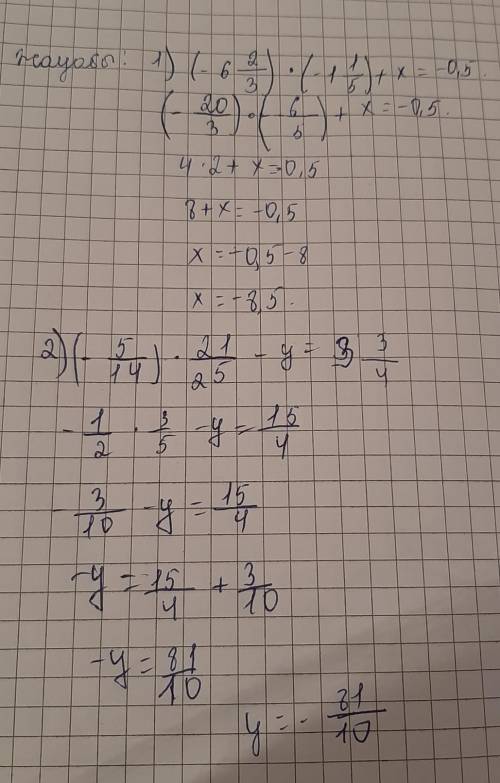 Жауабы: 1) (-6 2/3) · (-1 1/5) + x = -0,5.
(- 20/3) · (- 6/5) + x = -0,5.
4 · 2 + x = 0,5
8 + x = -0,5
x = -0,5 - 8
x = -8,5.
2) (- 5/14) · 21/25 - y = 3 3/4
- 1/2 · 3/5 - y = 15/4
- 3/10 - y = 15/4
-y = 15/4 + 3/10
-y = 81/10
y = - 81/10